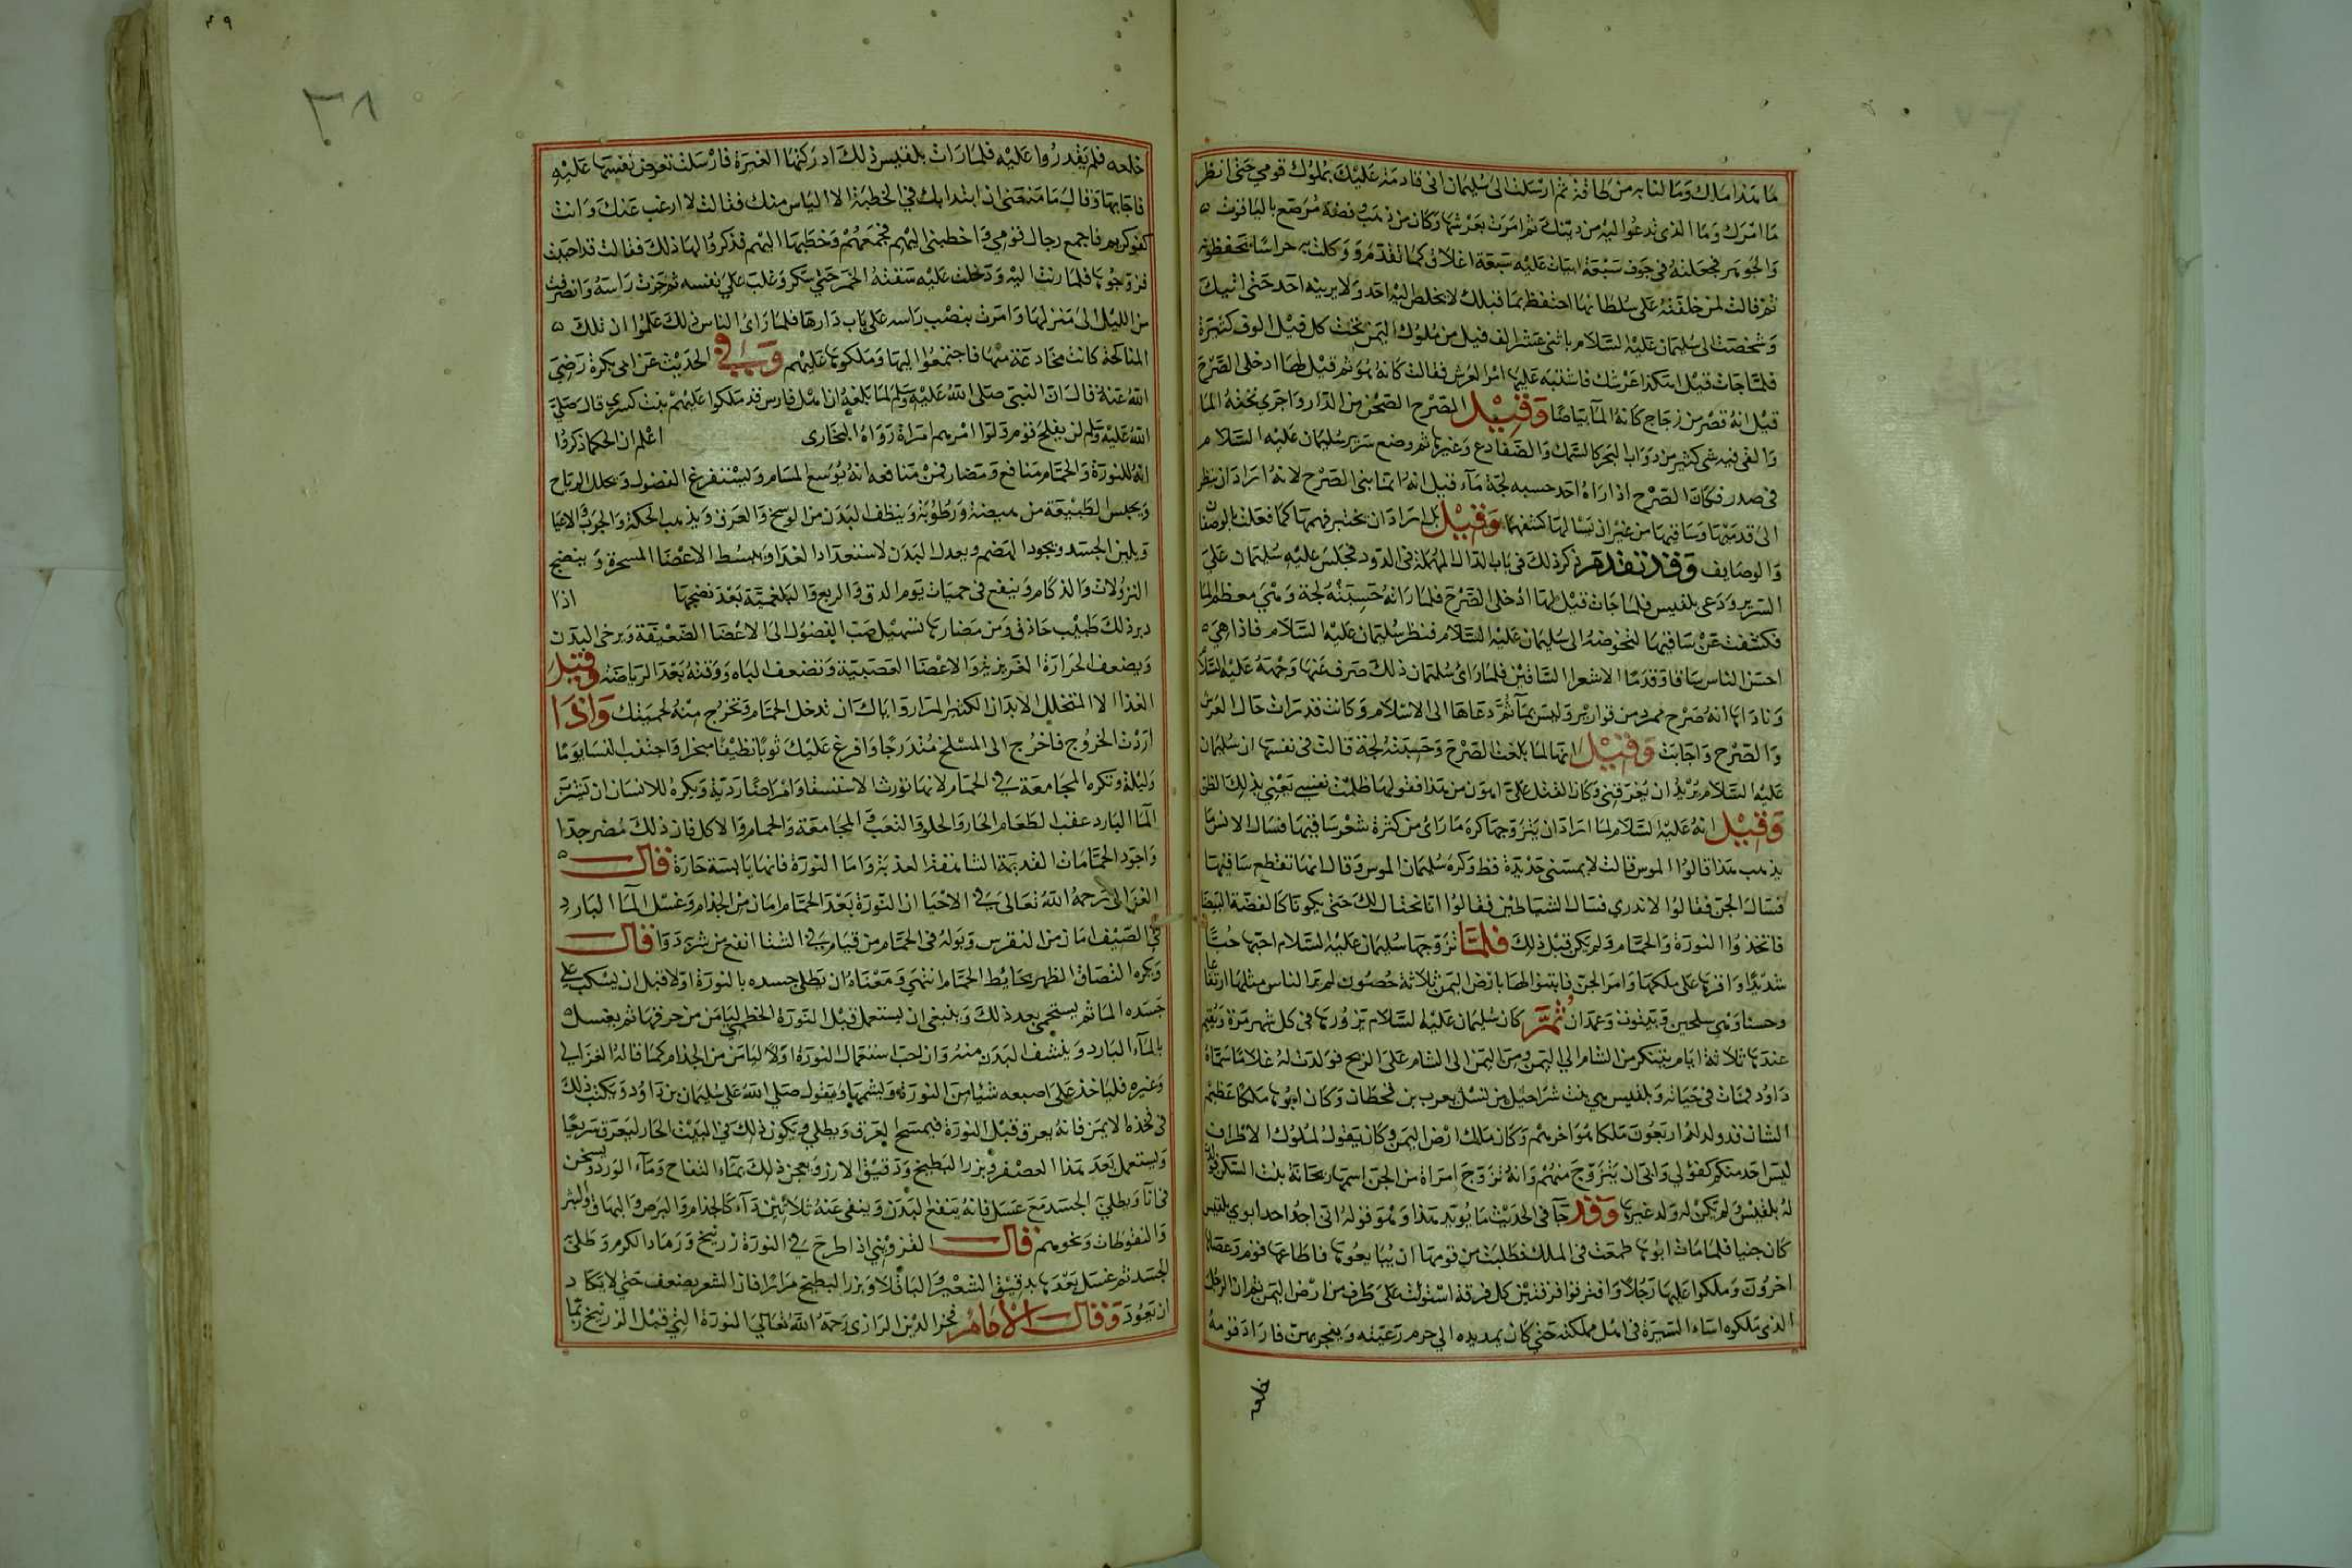 ما هذا ملك وما لنا به من طاقة ثم ارسلت الى سليمان انى قادمة عليك بملوك قومي حتى انظر
ما امرك وما الذى تدعوا اليه من دينك ثم امرت بعرشها وكان من ذهب وفضة مرصع بالياقوت
والجوهر فجعلته فى جوف سبعة ابيات عليه سبعة اغلاق كما تقدم ووكلت به حراسا تحفظونه
ثم قالت لمن خلفته على سلطانها احتفظ بما قبلك لا يخلص اليه احد ولا يرينه احد حتى اتيك
وشخصت الى سليمان عليه السلام باثنى عشر الف قيل من ملوك اليمن تحت كل قيل الوف كثيرة
فلما جات قيل اهكذا عرشك فاشتبه عليها امر العرش فقالت كانه هو ثم قيل لها ادخلى الصرح
قيل انه قصر من زجاج كانه الما بياضا وقيل الصرح الصحن من الدار واجرى تحته الما
والقى فيه شى كثير من دواب البحر كالسمك والضفادع وغيرها ثم وضع سرير سليمان عليه السلام
فى صدر فكان الصرح اذا راه احد حسبه لجة ماء قيل انه انما بنى الصرح لانه اراد ان ينظر
الى قدميها وساقيها من غير ان يسالها كشفهما وقيل بل اراد ان يختبر فهمها كما فعلت بالوصفا
والوصايف وقد تقدم ذكر ذلك فى باب الدال المهملة فى الدود فجلس عليه سليمان على
السرير ودعى بلقيس فلما جات قيل لها ادخلى الصرح فلما راته حسبته لجة وهي معظم الما
فكشفت عن ساقيها لتخوضه الى سليمان عليه السلام فنظر سليمان عليه السلام فاذا هي
احسن الناس ساقا وقدما الا شعر الساقين فلما راى سليمان ذلك صرف عنها وجهه عليه السلام
وناداها انه صرح ممرد من قوارير وليس بما ثم دعاها الى الاسلام وكانت قد رات حال العرش
والصرح واجابت وقيل انها لما بلغت الصرح وحسبته لجة قالت فى نفسها ان سليمان
عليه السلام يريد ان يغرقنى وكان القتل على اهون من هذا فقولها ظلمت نفسى يعنى بذلك الظن
وقيل انه عليه السلام لما اراد ان يتزوجها كره ما راى من كثرة شعر ساقيها فسال الانس ما
يذهب هذا قالوا الموس قالت لا يمسنى حديدة قط وكره سليمان الموس وقال انها تقطع ساقيها
فسال الجن فقالوا لا ندري فسال الشياطين فقالوا انا نحتال لك حتى يكونا كالفضة البيضا
فاتخذوا النورة والحمام ولم يكن قبل ذلك فلما تزوجها سليمان عليه السلام احبها حبا
شديدا واقرها على ملكها وامر الجن فابتنوا لها بارض اليمن ثلاثة حصون لم ير الناس مثلها ارتفاعا
وحسنا وهي سلحين وبينون وغمدان ثم كان سليمان عليه السلام يزورها فى كل شهر مرة ويقيم
عندها ثلاثة ايام يبتكر من الشام الى اليمن ومن اليمن الى الشام على الريح فولدت له غلاما سماه
داود فمات فى حياته وبلقيس هي بنت شراحيل من نسل يعرب بن قحطان وكان ابوها ملكا عظيم
الشان قد ولد له اربعون ملكا هو اخرهم وكان ملك ارض اليمن وكان يقول لملوك الاطراف
ليس احد منكم كفؤ لي وابى ان يتزوج منهم وانه تزوج امراة من الجن اسمها ريحانة بنت السكن فولدت
له بلقيس ولم يكن له ولد غيرها وقد جا فى الحديث ما يؤيد هذا وهو قوله ان احد ابوي بلقيس
كان جنيا فلما مات ابوها طمعت فى الملك فطلبت من قومها ان يبايعوها فاطاعها قوم وعصاها
اخرون وملكوا عليها رجلا وافترقوا فرقتين كل فرقة استولت على طرف من ارض اليمن ثم ان الرجل
الذى ملكوه اساء السيرة فى اهل مملكته حتى كان يمد يده الى حرم رعيته ويفجر بهن فاراد قومه
خلعه
٣٩
٣٨
خلعه فلم يقدروا عليه فلما رات بلقيس ذلك ادركتها الغيرة فارسلت تعرض نفسها عليه
فاجابها وقال ما منعنى ان ابتداءك في الخطبة الا الياس منك فقالت لا ارغب عنك وانت
كفو كريم فاجمع رجال قومي واخطبنى اليهم فجمعهم وخطبها اليهم فذكروا لها ذلك فقالت قد احببت
فزوجوها فلما زفت اليه ودخلت عليه سقته الخمر حتى سكر وغلب على نفسه ثم حزت راسه وانصرفت
من الليل الى منزلها وامرت بنصب راسه على باب دارها فلما راى الناس ذلك علموا ان تلك
المناكحة كانت مخادعة منها فاجتمعوا اليها وملكوها عليهم وفي الحديث عن ابى بكرة رضي
الله عنه قال ان النبى صلى الله عليه وسلم لما بلغه ان اهل فارس قد ملكوا عليهم بنت كسرى قال صلى
الله عليه وسلم لن يفلح قوم ولوا امرهم امراة رواه البخارى اعلم ان الحكما ذكروا
انه للنورة والحمام منافع ومضار فمن منافعه انه يوسع المسام ويستفرغ الفضول ويحلل الرياح
ويحبس الطبيعة من هيضة ورطوبة وينظف البدن من الوسخ والعرق ويذهب الحكة والجرب والاعيا
ويلين الجسد ويجود الهضم ويعد البدن لاستعداد الغذا وينشط الاعضا المسحرة وينضج
النزولات والزكام وينفع فى حميات يوم الدق والربع والبلغمية بعد نضجها اذا
دبر ذلك طبيب حاذق ومن مضارها تسهيل صب الفضول الى الاعضا الضعيفة ويرخى البدن
ويضعف الحرارة الغريزية والاعضا العصبية وتضعف الباه ووقته بعد الرياضة وقيل
الغذا الا المتخلل الابدان الكثير المرار واياك ان تدخل الحمام وتخرج منه لحميتك واذا
اردت الخروج فاخرج الى المسلخ متدرجا وافرغ عليك ثوبا نظيفا مبخرا واجتنب النسا يوما
وليلة وتكره المجامعة في الحمام لانها تورث الاستسقا وامراضا ردية ويكره للانسان ان يشرب
الما البارد عقب الطعام الحار والحلو والتعب والمجامعة والحمام والاكل فان ذلك مضر جدا
واجود الحمامات القديمة الشاهقة العذبة واما النورة فانها يابسة حارة قال
الغزالى رحمه الله تعالى في الاحيا ان النورة بعد الحمام امان من الجذام وغسل الما البارد
في الصيف امان من النقرس وبوله فى الحمام من قيام في الشتا انفع من شربة دوا قال
ويكره التصاق الظهر بحايط الحمام انتهى ومعناه ان يطلى جسده بالنورة اولا قبل ان يسكب على
جسده الما ثم يستحمى بعد ذلك وينبغى ان يستعمل قبل النورة الخطمى ليامن من حرقها ثم يغسل
بالماء البارد وينشف البدن منه وان احب استعمال النورة اولا ليامن من الجذام كما قاله الغزالى
وغيره فلياخذ على اصبعه شيا من النورة ويشمها ويقول صلى الله على سليمان بن داود ويكتب ذلك
فى فخذه الايمن فانه يعرق قبل النورة فيمسح العرق ويطلى ويكون ذلك في البيت الحار ليعرق سريعا
ويستعمل بعد هذا العصفر وبزر البطيخ ودقيق الارز ويعجن ذلك بماء التفاح وماء الورد ويسخن
فى انا ويطلى الجسد مع عسل فانه ينفع البدن وينفى عنه ثلاثين داء كالجذام والبرص والبهاق والبثر
والنفوطات ونحوهم قال القزوينى اذا طرح في النورة زرنيخ ورماد الكرم وطلى
الجسد ثم غسل بعدها بدقيق الشعير والباقلا وبزر البطيخ مرارا فان الشعر يضعف حتى لا يكاد
ان يعود وقال الامام فخر الدين الرازى رحمه الله تعالى النورة التي قبل الزرنيخ ربما